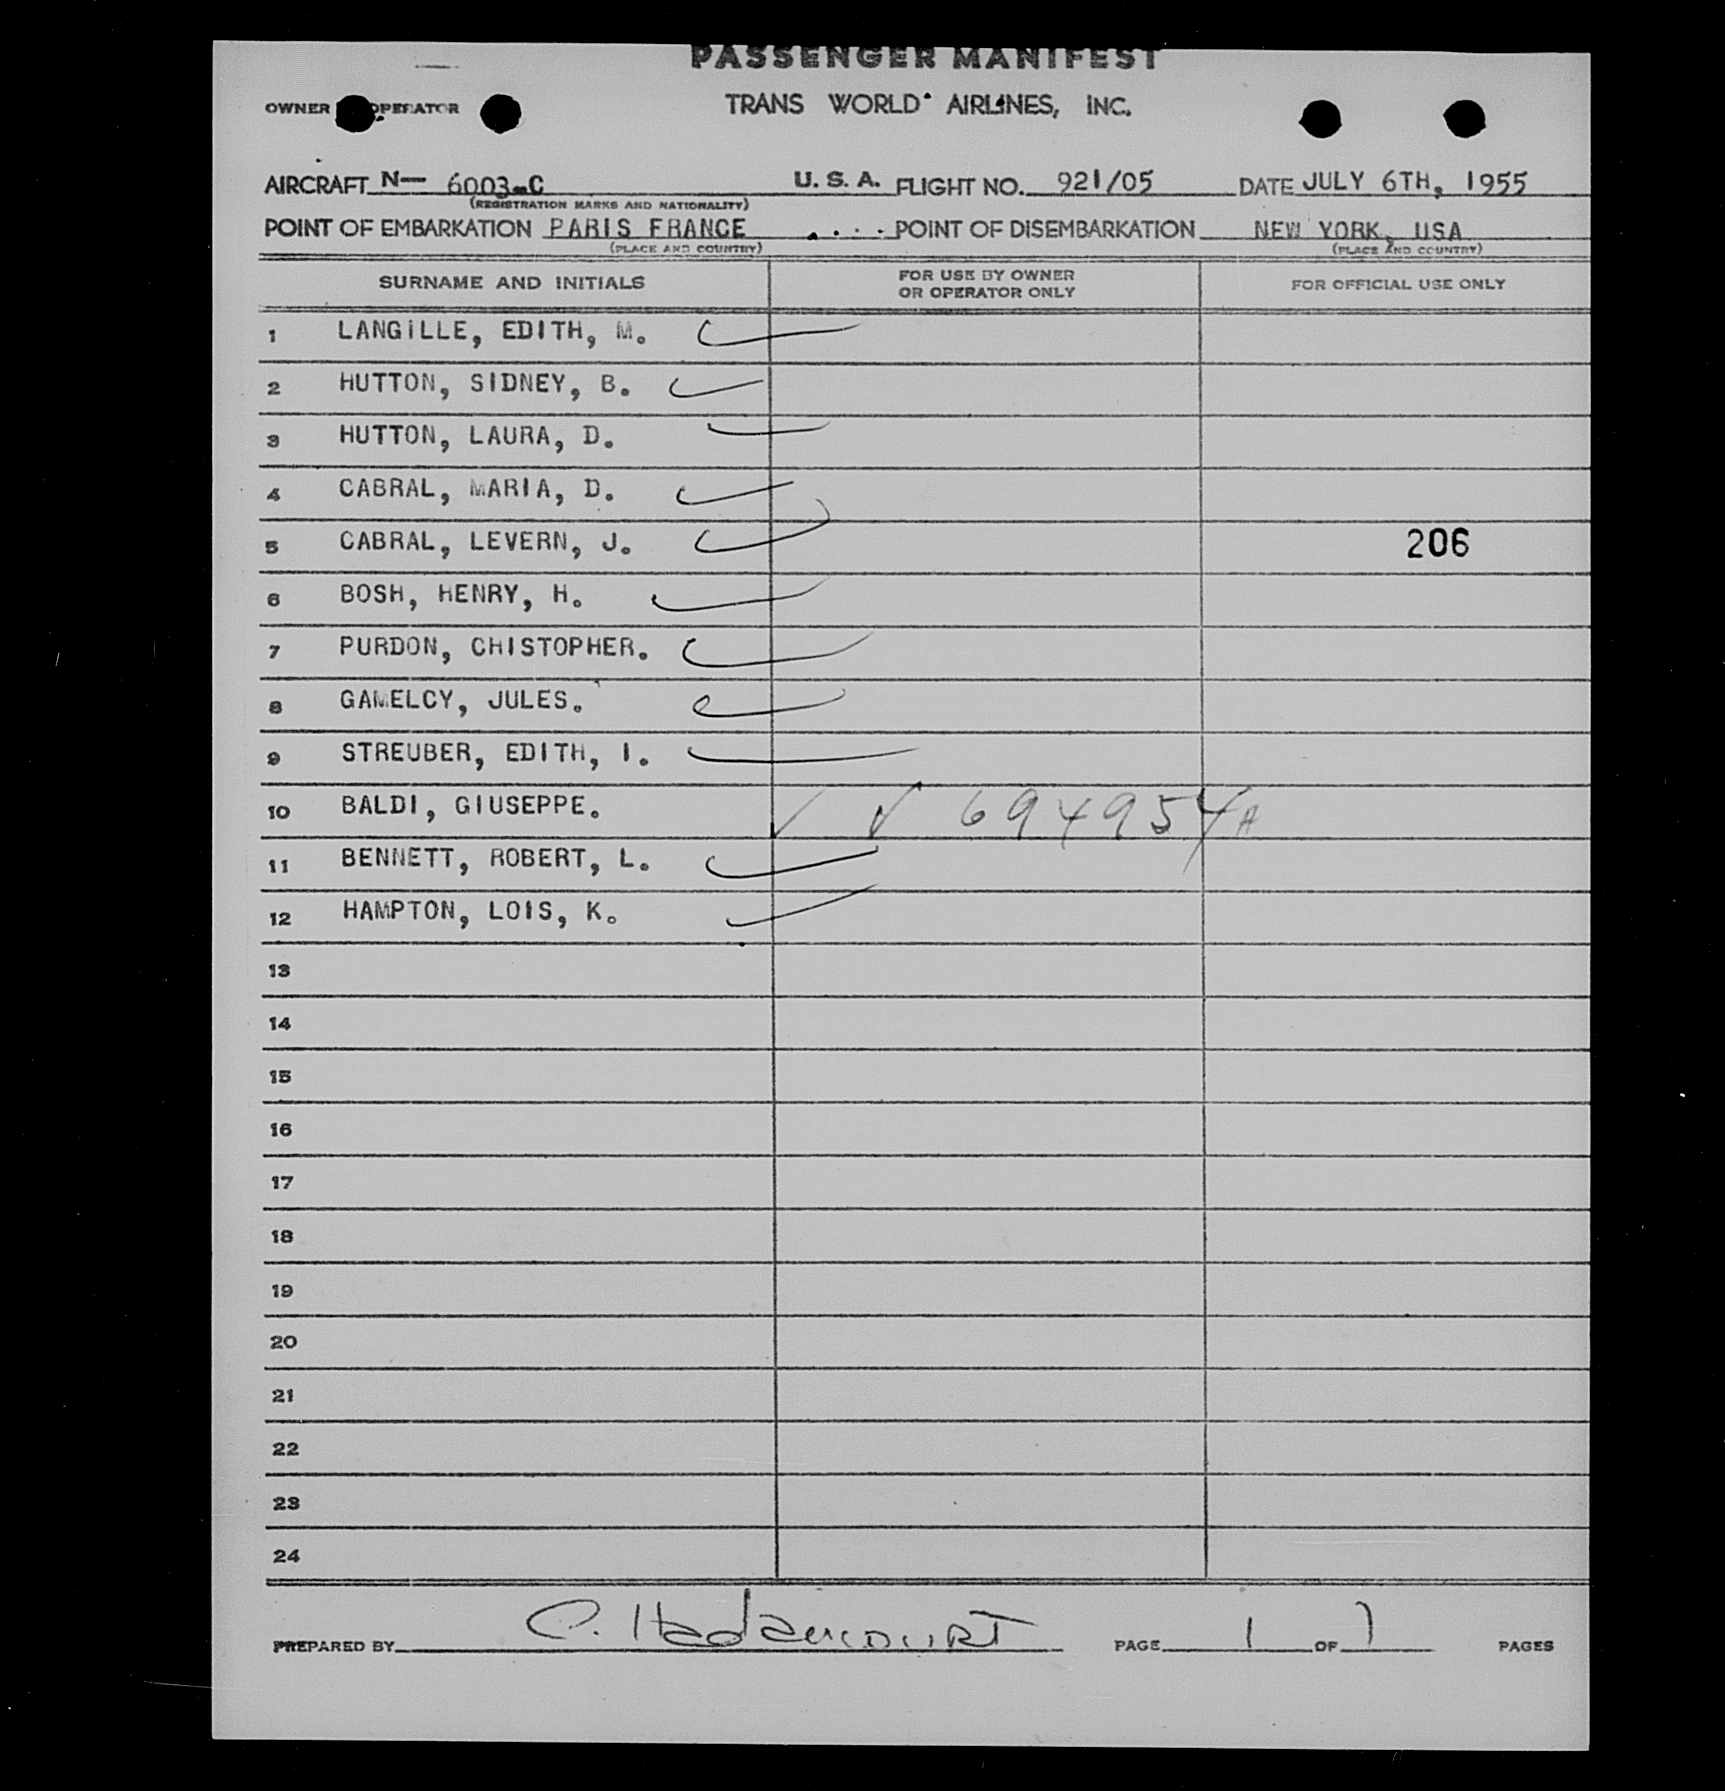 PASSENGER MANIFEST
OWNER OPERATOR TRANS WORLD AIRLINES, INC.
AIRCRAFT N— 6003-C U. S. A. FLIGHT NO. 921/05 DATE JULY 6TH, 1955
(REGISTRATION MARKS AND NATIONALITY)
POINT OF EMBARKATION PARIS FRANCE POINT OF DISEMBARKATION NEW YORK, USA
(PLACE AND COUNTRY) (PLACE AND COUNTRY)
SURNAME AND INITIALS FOR USE BY OWNER OR OPERATOR ONLY FOR OFFICIAL USE ONLY
1 LANGILLE, EDITH, M.
2 HUTTON, SIDNEY, B.
3 HUTTON, LAURA, D.
4 CABRAL, MARIA, D.
5 CABRAL, LEVERN, J. 206
6 BOSH, HENRY, H.
7 PURDON, CHISTOPHER.
8 GAMELCY, JULES.
9 STREUBER, EDITH, I.
10 BALDI, GIUSEPPE. ✓ ✓ 694954A
11 BENNETT, ROBERT, L.
12 HAMPTON, LOIS, K.
13
14
15
16
17
18
19
20
21
22
23
24
PREPARED BY PAGE 1 OF 1 PAGES